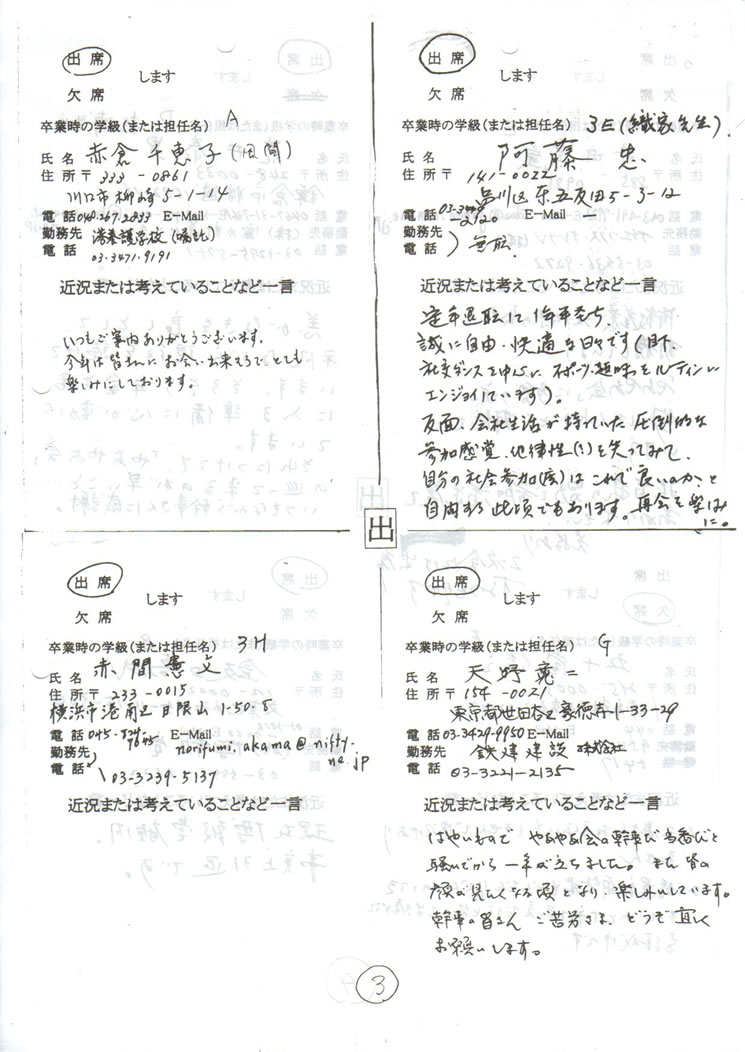 出席
します
欠席
卒業時の学級(または担任名) A
氏名 赤倉千恵子(旧 関)
住所〒 333-0861
川口市柳崎5-1-14
電話 048-267-2833 E-Mail
勤務先 港養護学校(嘱託)
電話 03-3471-9191
近況または考えていることなど一言
いつもご案内ありがとうございます。
今年は皆さんにお会い出来そうで、とても
楽しみにしております。
出席
します
欠席
卒業時の学級(または担任名) 3E(織家先生)
氏名 阿藤 忠
住所〒 141-0022
品川区東五反田5-3-12
電話 03-
-2120 E-Mail —
勤務先
電話 無職
近況または考えていることなど一言
定年退職して1年半たち、
誠に自由・快適な日々です(目下、
社交ダンスを中心にスポーツ・趣味をルーティンに
エンジョイしています)。
反面、会社生活が持っていた圧倒的な
参加感覚、他律性(!)を失ってみて、
自分の社会参加(度)はこれで良いのか、と
自問する此頃でもあります。再会を楽しみ
に。
出
出席
します
欠席
卒業時の学級(または担任名) 3H
氏名 赤間憲文
住所〒 233-0015
横浜市港南区日限山1-50-8
電話 045-
9645 E-Mail norifumi.akama@nifty.
ne.jp
勤務先
電話 03-3239-5137
近況または考えていることなど一言
出席
します
欠席
卒業時の学級(または担任名) G
氏名 天野亮二
住所〒 154-0021
東京都世田谷区豪徳寺1-33-29
電話 03-3429-9950 E-Mail
勤務先 鉄建建設 株式会社
電話 03-3221-2135
近況または考えていることなど一言
はやいもので やあやあ会の幹事だ当番だと
騒いでから一年が立ちました。また皆の
顔が見たくなる頃となり、楽しみにしています。
幹事の皆さん ご苦労さま、どうぞ宜しく
お願いします。
3